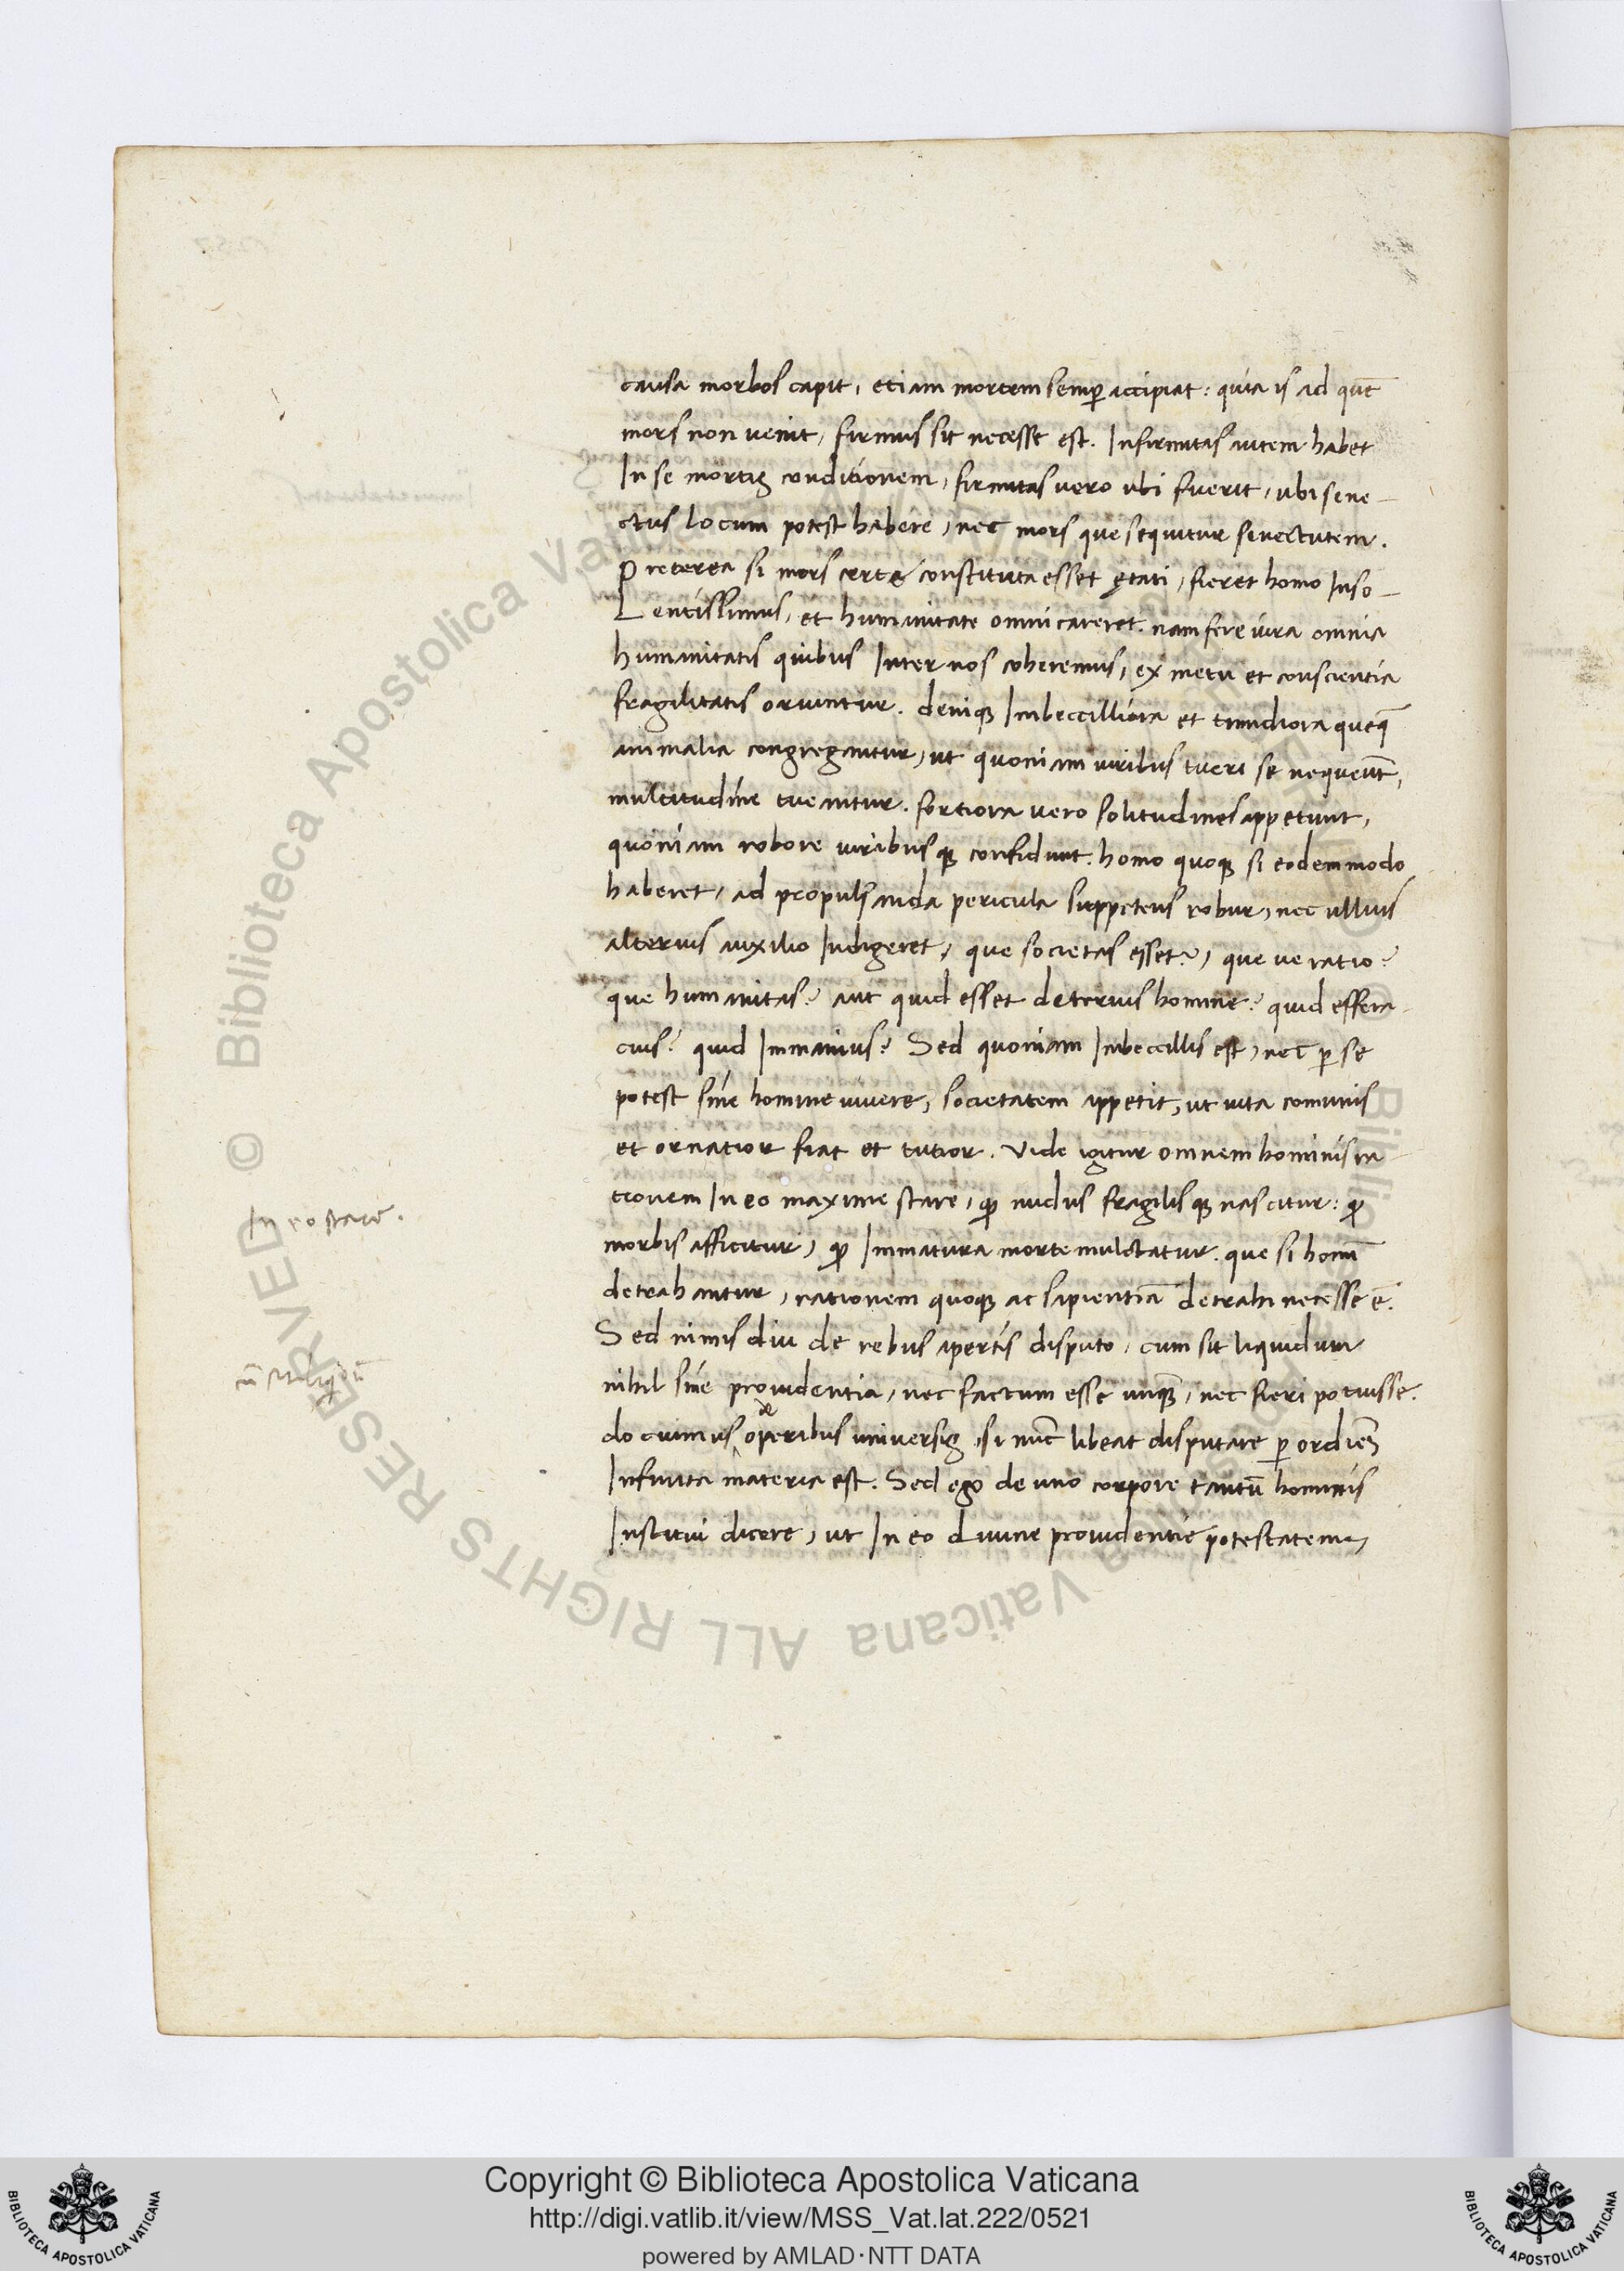 causa morbos capit, etiam mortem semꝑ accipiat: quia is ad quē
mors non venit, firmus sit necesse est. Infirmitas autem habet
In se mortis conditionem, firmitas vero ubi fuerit, ubi sene-
ctus locum potest habere, nec mors que sequitur senectutem.
Preterea si mors certe constituta esset ętati, fieret homo Inso-
Lentissimus, et humanitate omni careret. nam fere iura omnia
humanitatis quibus Inter nos coheremus, ex metu et conscientia
fragilitatis oriuntur. deniqꝫ Imbecilliora et timidiora queqꝫ
animalia congregantur, ut quoniam viribus tueri se nequeūt,
multitudine tueantur. fortiora vero solitudines appetunt,
quoniam robore viribusqꝫ confidunt. homo quoqꝫ si eodem modo
haberet, ad propulsanda pericula suppetens robur, nec ullius
alterius auxilio Indigeret, que societas esset?, que ve ratio?
que humanitas? aut quid esset deterius homine? quid effera-
cius? quid Immanius? Sed quoniam Imbecillis est, nec ꝑ se
potest sine homine vivere, societatem appetit, ut vita comunis
et ornatior fiat et tutior. Vide igitur omnem hominis ra-
tionem In eo maxime stare, qꝙ nudus fragilisqꝫ nascitur: qꝙ
morbis afficitur, qꝙ Immatura morte mulctatur. que si homī
detrahantur, rationem quoqꝫ ac sapientiā detrahi necesse ē.
In eo stare.
Sed nimis diu de rebus apertis disputo, cum sit liquidum
nihil sine providentia, nec factum esse unqꝫ, nec fieri potuisse.
de
docuimus operibus universis, si nūc libeat disputare ꝑ ordinē
Infinita materia est. Sed ego de uno corpore tantū hominis
Institui dicere, ut In eo divine providentie potestatem,